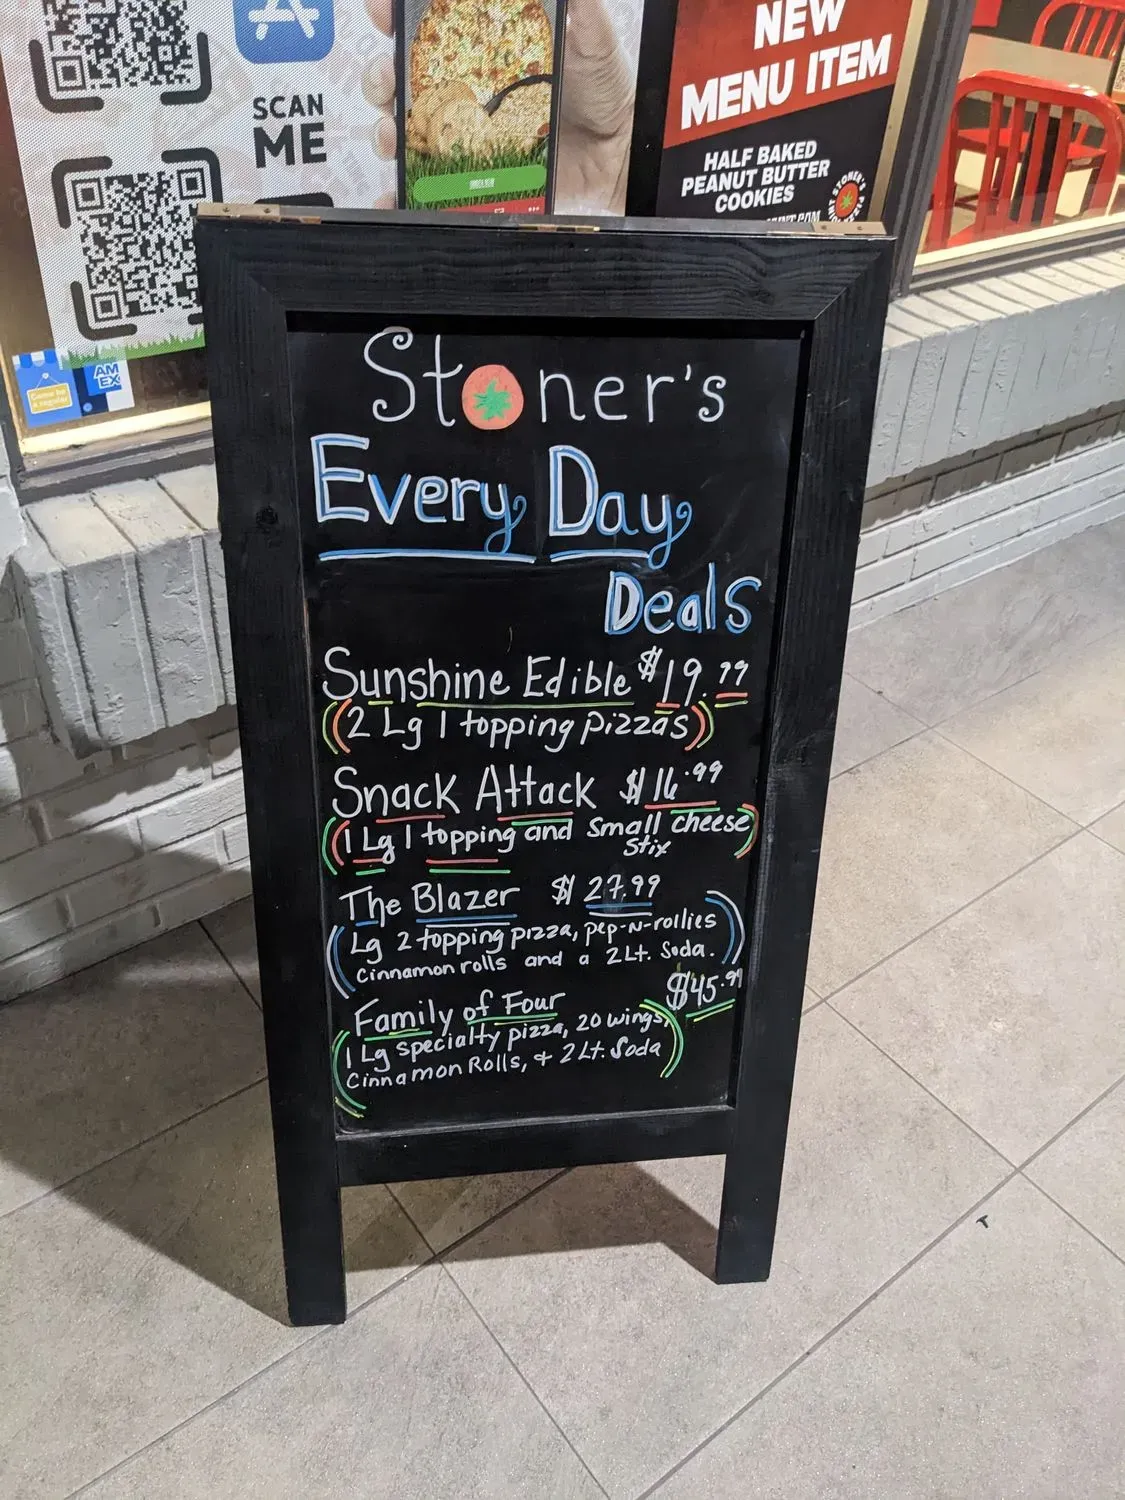 SCAN
ME
NEW
MENU ITEM
HALF BAKED
PEANUT BUTTER
COOKIES
AM
EX
Stoner's
Every Day
Deals
Sunshine Edible $19.99
(2 Lg 1 topping pizzas)
Snack Attack $16.99
(1 Lg 1 topping and small cheese
stix
The Blazer $27.99
(Lg 2 topping pizza, pep-N-rollies
cinnamon rolls and a 2Lt. Soda.)
Family of Four $45.99
(1 Lg specialty pizza, 20 wings,
Cinnamon Rolls, + 2Lt. Soda)